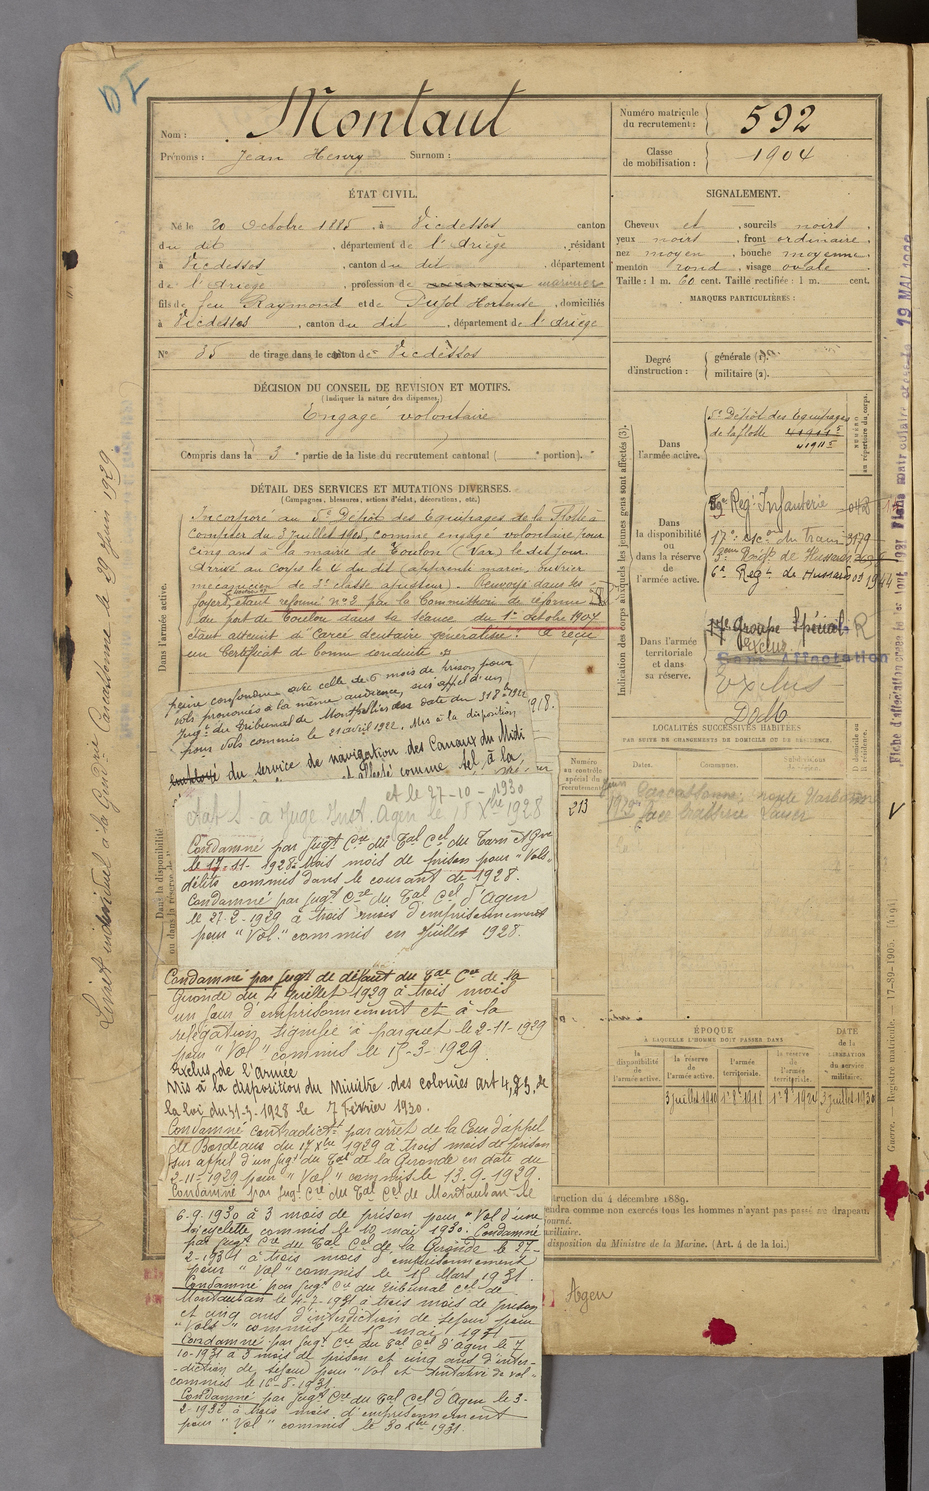 Nom : Montaut
Prénoms : Jean Henry Surnom :
Numéro matricule du recrutement : 592
Classe de mobilisation : 1904
ÉTAT CIVIL.
Né le 20 Octobre 1885, à Vicdessos canton
du dit, département de l'Ariège, résidant
à Vicdessos, canton du dit, département
de l'Ariège, profession de marinier
fils de feu Raymond et de Pujol Hortense, domiciliés
à Vicdessos, canton du dit, département de l'Ariège
N° 35 de tirage dans le canton de Vicdessos
SIGNALEMENT.
Cheveux et, sourcils noirs,
yeux noirs, front ordinaire,
nez moyen, bouche moyenne,
menton rond, visage ovale
Taille : 1 m. 60 cent. Taille rectifiée : 1 m. cent.
MARQUES PARTICULIÈRES :
Degré d'instruction : générale (1).
militaire (2).
DÉCISION DU CONSEIL DE REVISION ET MOTIFS.
(Indiquer la nature des dispenses.)
Engagé volontaire
Compris dans la 3e partie de la liste du recrutement cantonal ( e portion).
DÉTAIL DES SERVICES ET MUTATIONS DIVERSES.
(Campagnes, blessures, actions d'éclat, décorations, etc.)
Dans l'armée active.
Incorporé au 5e Dépôt des Equipages de la Flotte à
compter du 3 juillet 1905, comme engagé volontaire pour
cinq ans à la mairie de Toulon (Var) le dit jour.
Arrivé au corps le 4 du dit (apprenti marin, ouvrier
mécanicien de 2e classe ajusteur). Renvoyé dans ses
foyers, étant réformé n° 2 par la Commission de réforme
du port de Toulon dans sa séance du 1er octobre 1907
étant atteint d'Carie dentaire généralisée. A reçu
un Certificat de bonne conduite
Dans la disponibilité ou dans la réserve de
peine confondue avec celle de 6 mois de prison pour
vols prononcés à la même audience, sur appel d'un
Jugt du Tribunal de Montpellier en date du
pour vols commis le 21 avril 1922. Mis à la disposition
du service de navigation des Canaux du Midi
et affecté comme tel à la
et le 27-10-1930
état 2 à Juge Inst. Agen le 15 Xbre 1928
Condamné par Jugt Cre du Tal Cel du Tarn et Gne
le 17-11-1928 à trois mois de prison pour "Vols"
délits commis dans le courant de 1928.
Condamné par Jugt Cre du Tal Cel d'Agen
le 27-2-1929 à trois mois d'emprisonnement
pour "Vol" commis en Juillet 1928.
Condamné par Jugt de défaut du Tal Cre de la
Gironde du 4 Juillet 1929 à trois mois
un jour d'emprisonnement et à la
relégation signifié à parquet le 2-11-1929
pour "Vol" commis le 15-3-1929.
Exclus de l'armée
Mis à la disposition du Ministre des colonies art 4, § 5 de
la loi du 31-3-1928 le 7 février 1930.
Condamné contradictt par arrêt de la Cour d'appel
de Bordeaux du 17 Xbre 1929 à trois mois de prison
sur appel d'un jugt du Tal de la Gironde en date du
2-11-1929 pour "Vol" commis le 13-9-1929.
Condamné par Jugt Cre du Tal Cel de Montauban le
6-9-1930 à 3 mois de prison pour "Vol d'une
bicyclette commis le 10 mai 1930. Condamné
par Jugt Cre du Tal Cel de la Gironde le 27-
2-1931 à trois mois d'emprisonnement
pour "Vol" commis le 15 Mars 1931.
Condamné par Jugt Cre du Tribunal Cel de
Montauban le 4-7-1931 à trois mois de prison
et cinq ans d'interdiction de séjour pour
"Vols" commis le 15 mai 1931
Condamné par Jugt Cre du Tal Cel d'Agen le 7
10-1931 à 3 mois de prison et cinq ans d'inter-
-diction de séjour pour "Vol et tentative de vol"
commis le 16-8-1931
Condamné par Jugt Cre du Tal Cel d'Agen le 3-
2-1932 à trois mois d'emprisonnement
pour "Vol" commis le 30 Xbre 1931.
Indication des corps auxquels les jeunes gens sont affectés (3).
NUMÉRO au répertoire du corps.
Dans l'armée active.
5e Dépôt des Equipages
de la flotte 41911 5
41911 5
Dans la disponibilité ou dans la réserve de l'armée active.
59e Reg. Infanterie
17e Esc. du Train 3179
Regt de Hussards
6e Regt de Hussards
Dans l'armée territoriale et dans sa réserve.
17e Groupe Spécial R
Exclus
Sans Affectation
Exclus
DoM
LOCALITÉS SUCCESSIVES HABITÉES
PAR SUITE DE CHANGEMENTS DE DOMICILE OU DE RÉSIDENCE.
Numéro au contrôle spécial du recrutement
Dates. Communes. Subdivisions de région. D domicile ou R résidence.
213
Carcassonne, route Narbonne
face
ÉPOQUE
A LAQUELLE L'HOMME DOIT PASSER DANS
la disponibilité de l'armée active. la réserve de l'armée active. l'armée territoriale. la réserve de l'armée territoriale.
DATE de la LIBÉRATION du service militaire.
3 juillet 1910 1er 8bre 1918 1er 8bre 1924 3 juillet 1930
struction du 4 décembre 1889.
endra comme non exercés tous les hommes n'ayant pas passé au drapeau.
ourné.
uxiliaire.
disposition du Ministre de la Marine. (Art. 4 de la loi.)
Agen
Livret individuel à la Gendrie Carcassonne le 29 juin 1929
Guerre. — Registre matricule. — 17-89-1905. [4194]